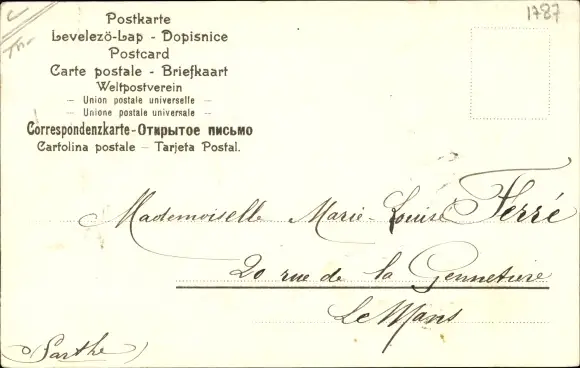 1787
Postkarte
Levelezö-Lap - Dopisnice
Postcard
Carte postale - Briefkaart
Weltpostverein
— Union postale universelle —
— Unione postale universale —
Correspondenzkarte-Открытое письмо
Cartolina postale — Tarjeta Postal.
Mademoiselle Marie-Louise Ferré
20 rue de la Gennetière
Le Mans
(Sarthe)